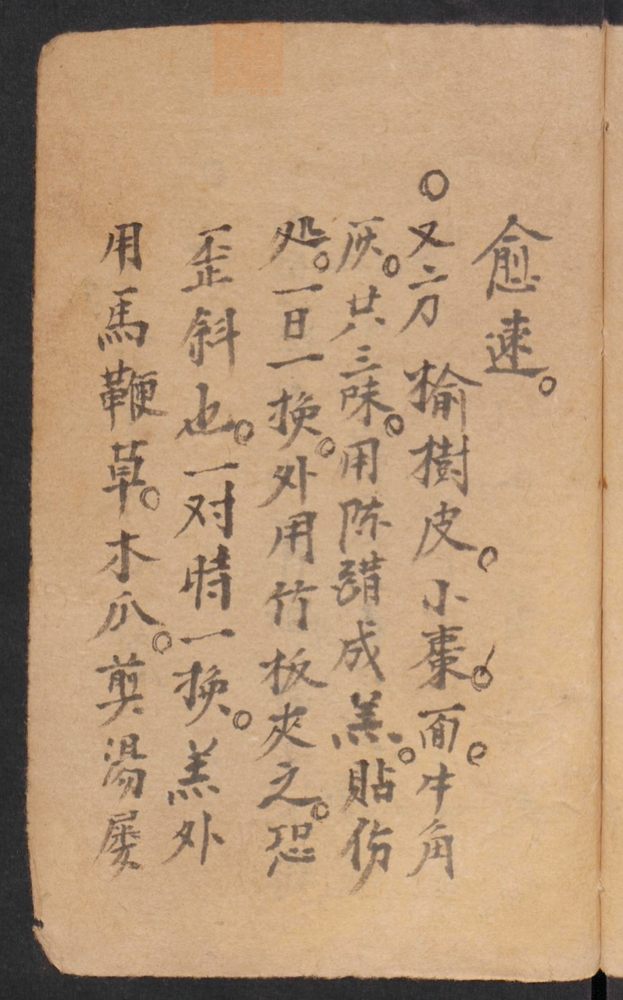 愈速。
○又二方 榆樹皮。小棗。面。牛角
灰。共三味。用陈醋成羔。貼伤
处。一日一换。外用竹板夾之。恐
歪斜也。一对時一换。羔外
用馬鞭草。木瓜。煎湯屡